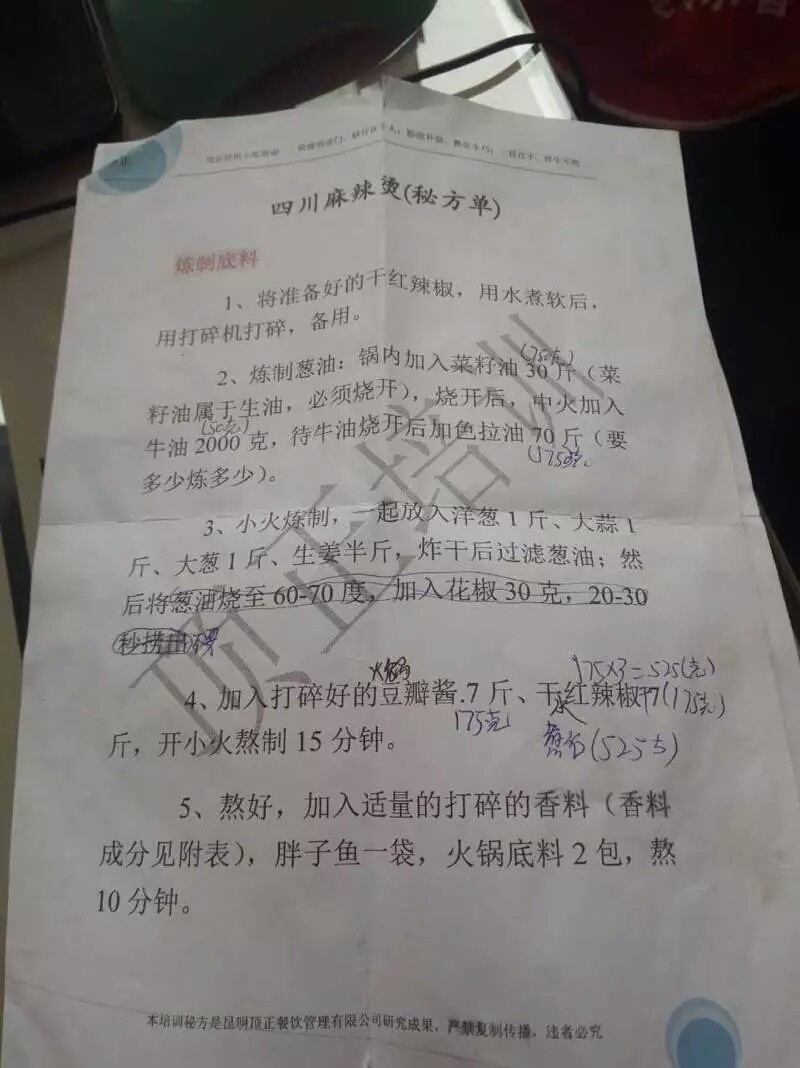 四川麻辣烫(秘方单)
炼制底料
1、将准备好的干红辣椒，用水煮软后，
用打碎机打碎，备用。
(750克)
2、炼制葱油：锅内加入菜籽油30斤（菜
籽油属于生油，必须烧开），烧开后，中火加入
(50克)
牛油2000克，待牛油烧开后加色拉油70斤（要
(1750克
多少炼多少）。
3、小火炼制，一起放入洋葱1斤、大蒜1
斤、大葱1斤、生姜半斤，炸干后过滤葱油；然
后将葱油烧至60-70度，加入花椒30克，20-30
秒捞出
火锅
175×3=525(克)
4、加入打碎好的豆瓣酱.7斤、干红辣椒17(175克)
175克
水
斤，开小火熬制15分钟。
(525克)
5、熬好，加入适量的打碎的香料（香料
成分见附表），胖子鱼一袋，火锅底料2包，熬
10分钟。
顶正培训
本培训秘方是昆明顶正餐饮管理有限公司研究成果，严禁复制传播，违者必究